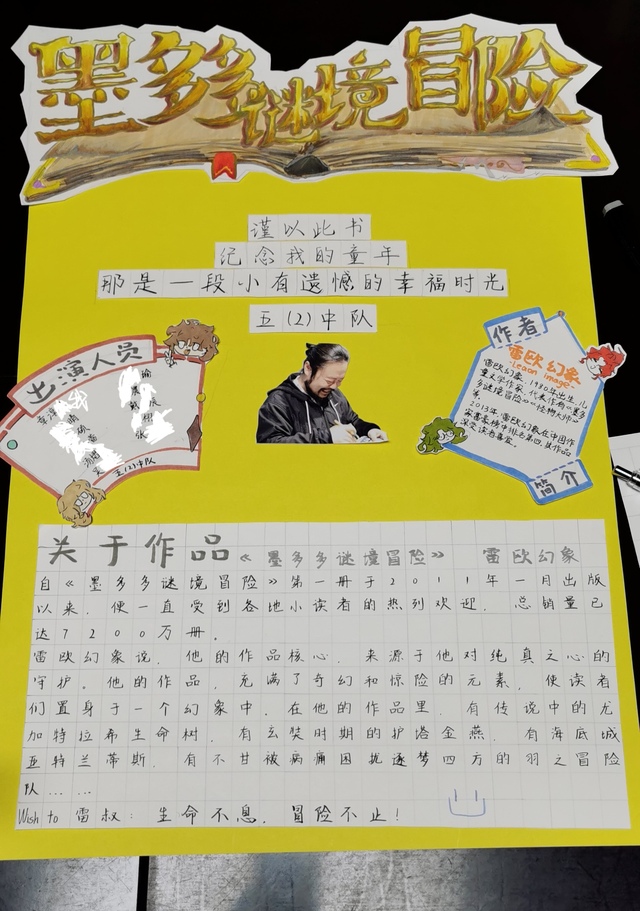 墨多多谜境冒险
谨以此书
纪念我的童年
那是一段小有遗憾的幸福时光
五(2)中队
出演人员
五(2)中队
作者
雷欧幻象
Leaon image
雷欧幻象,1980年出生,儿
童文学作家,代表作有《墨多
多谜境冒险》《怪物大师》
等。
2013年,雷欧幻象在中国作
家富豪榜中排名第四,其作品
深受读者喜爱。
简介
关于作品《墨多多谜境冒险》 雷欧幻象
自《墨多多谜境冒险》第一册于2011年一月出版
以来,便一直受到各地小读者的热烈欢迎,总销量已
达7200万册。
雷欧幻象说,他的作品核心,来源于他对纯真之心的
守护。他的作品,充满了奇幻和惊险的元素,使读者
们置身于一个幻象中,在他的作品里,有传说中的尤
加特拉希生命树,有玄奘时期的护塔金燕,有海底城
亚特兰蒂斯,有不甘被病痛困扰逐梦四方的羽之冒险
队……
Wish to 雷叔:生命不息,冒险不止!